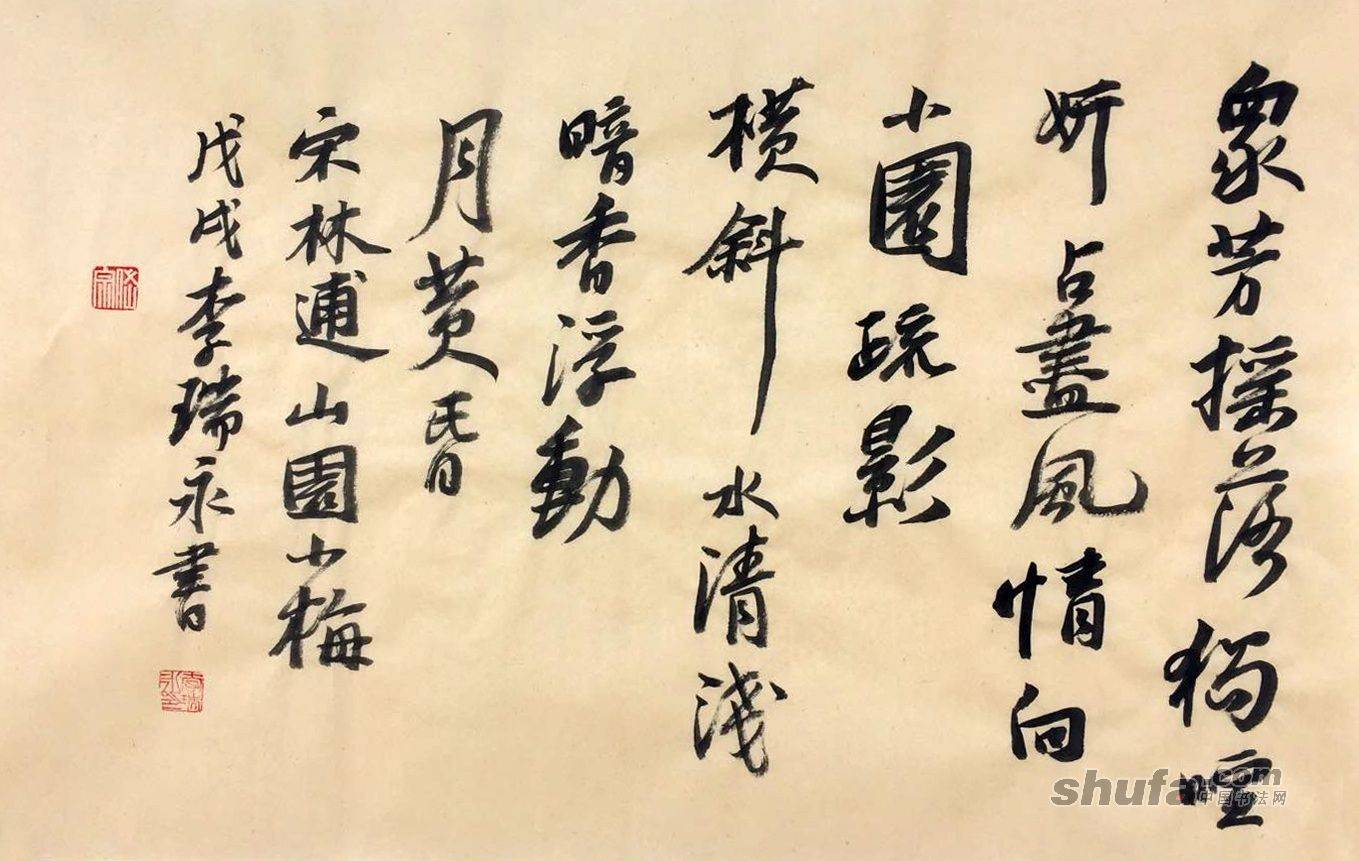 衆芳摇落獨喧
妍占盡風情向
小園疏影
橫斜水清淺
暗香浮動
月黄昏
宋林逋山園小梅
戊戌李瑞永書
李瑞永印
shufa.com
中国书法网